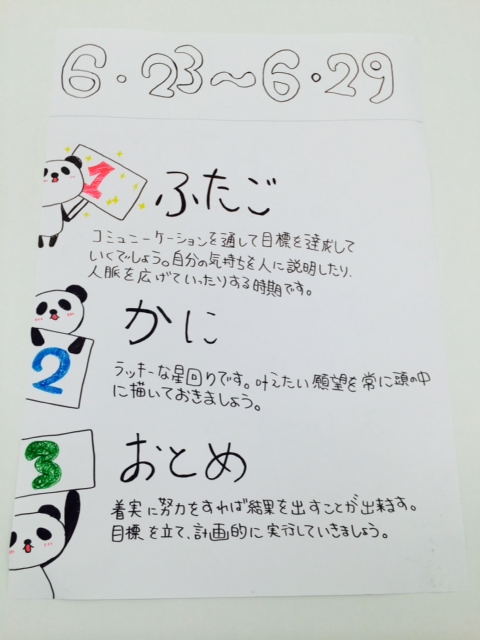 6・23〜6・29
1
ふたご
コミュニーケーションを通して目標を達成して
いくでしょう。自分の気持ちを人に説明したり、
人脈を広げていったりする時期です。
2
かに
ラッキーな星回りです。叶えたい願望を常に頭の中
に描いておきましょう。
3
おとめ
着実に努力をすれば結果を出すことが出来ます。
目標を立て、計画的に実行していきましょう。